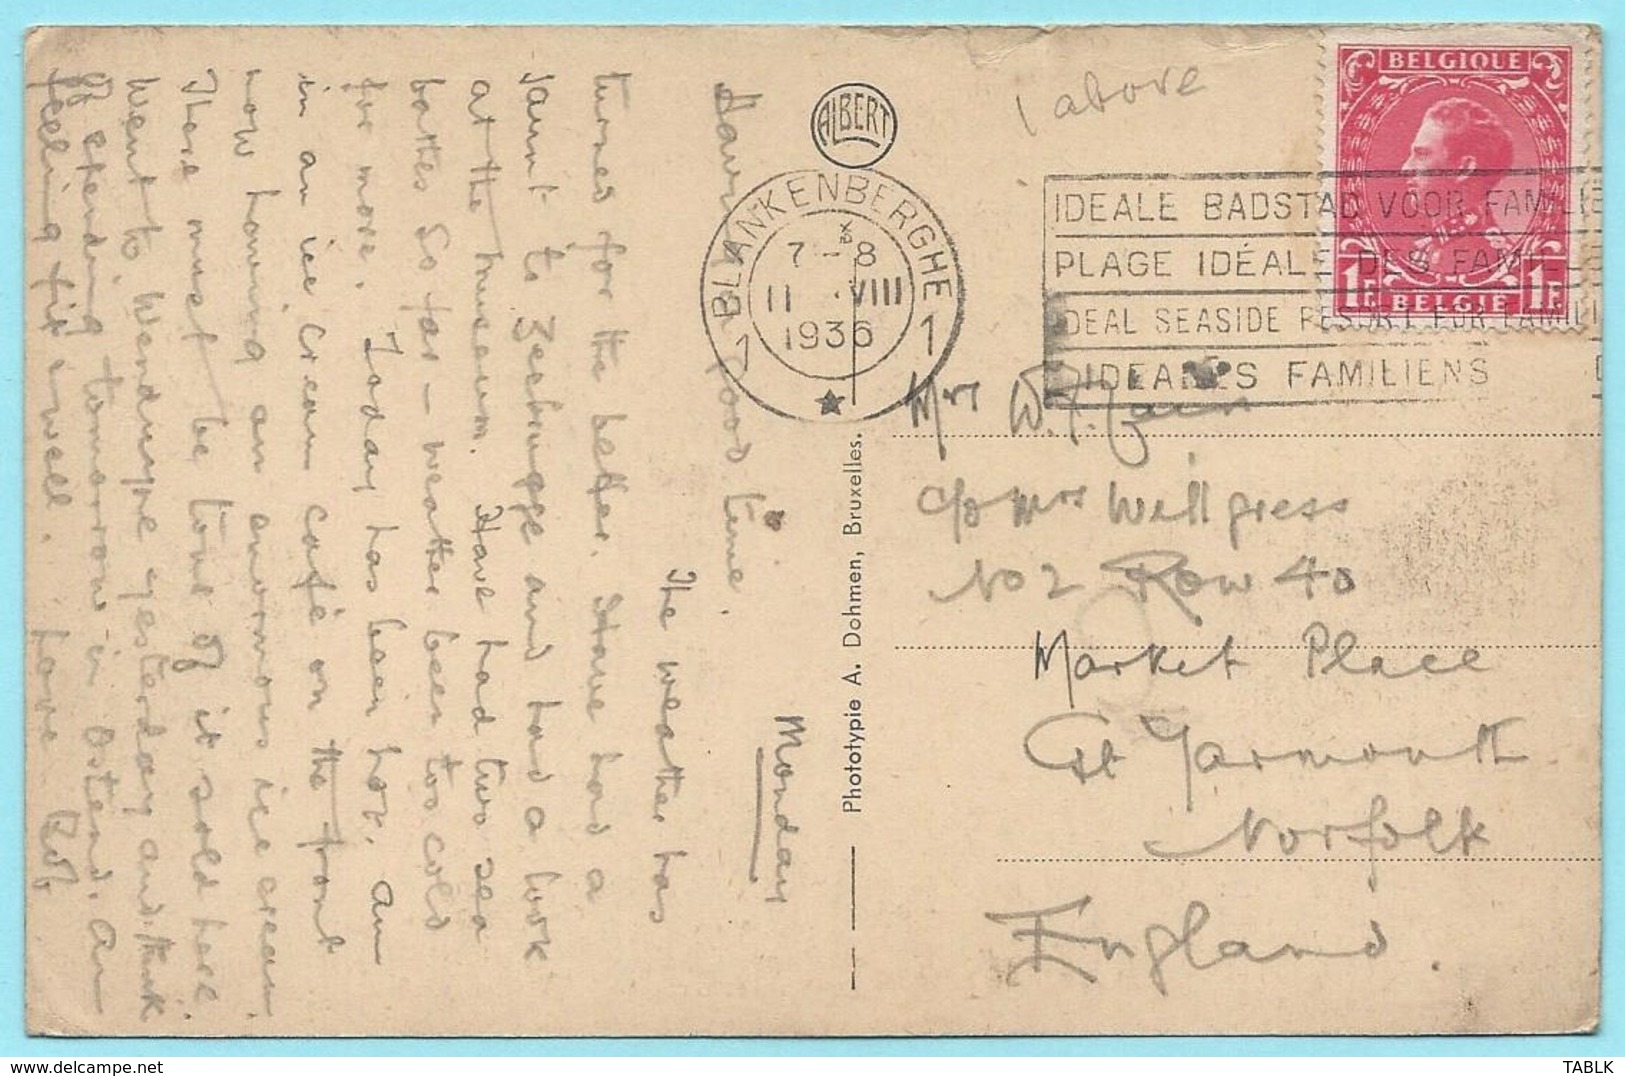 Monday
The weather has
turned for the better. Have had a
jaunt to Zeebrugge and had a look
at the museum. Have had two sea
bathes so far – weather been too cold
for more. Today has been hot. Am
in an ice cream café on the front
now having an enormous ice cream.
There must be tons of it sold here.
Went to Wenduyne yesterday and think
of spending tomorrow in Ostend. Am
feeling fit & well. Love Bob
Having a good time.
(above
ALBERT
BLANKENBERGHE
1 1
7-8
11 VIII
1936
IDEALE BADSTAD VOOR FAMILIE
PLAGE IDÉALE DES FAMILLES
IDEAL SEASIDE RESORT FOR FAMILI
IDEALES FAMILIENS
BELGIQUE
1F 1F
BELGIE
Phototypie A. Dohmen, Bruxelles.
Mrs W.F.
c/o Mrs Willgress
No 2 Row 40
Market Place
Gt Yarmouth
Norfolk
England.
TABLK